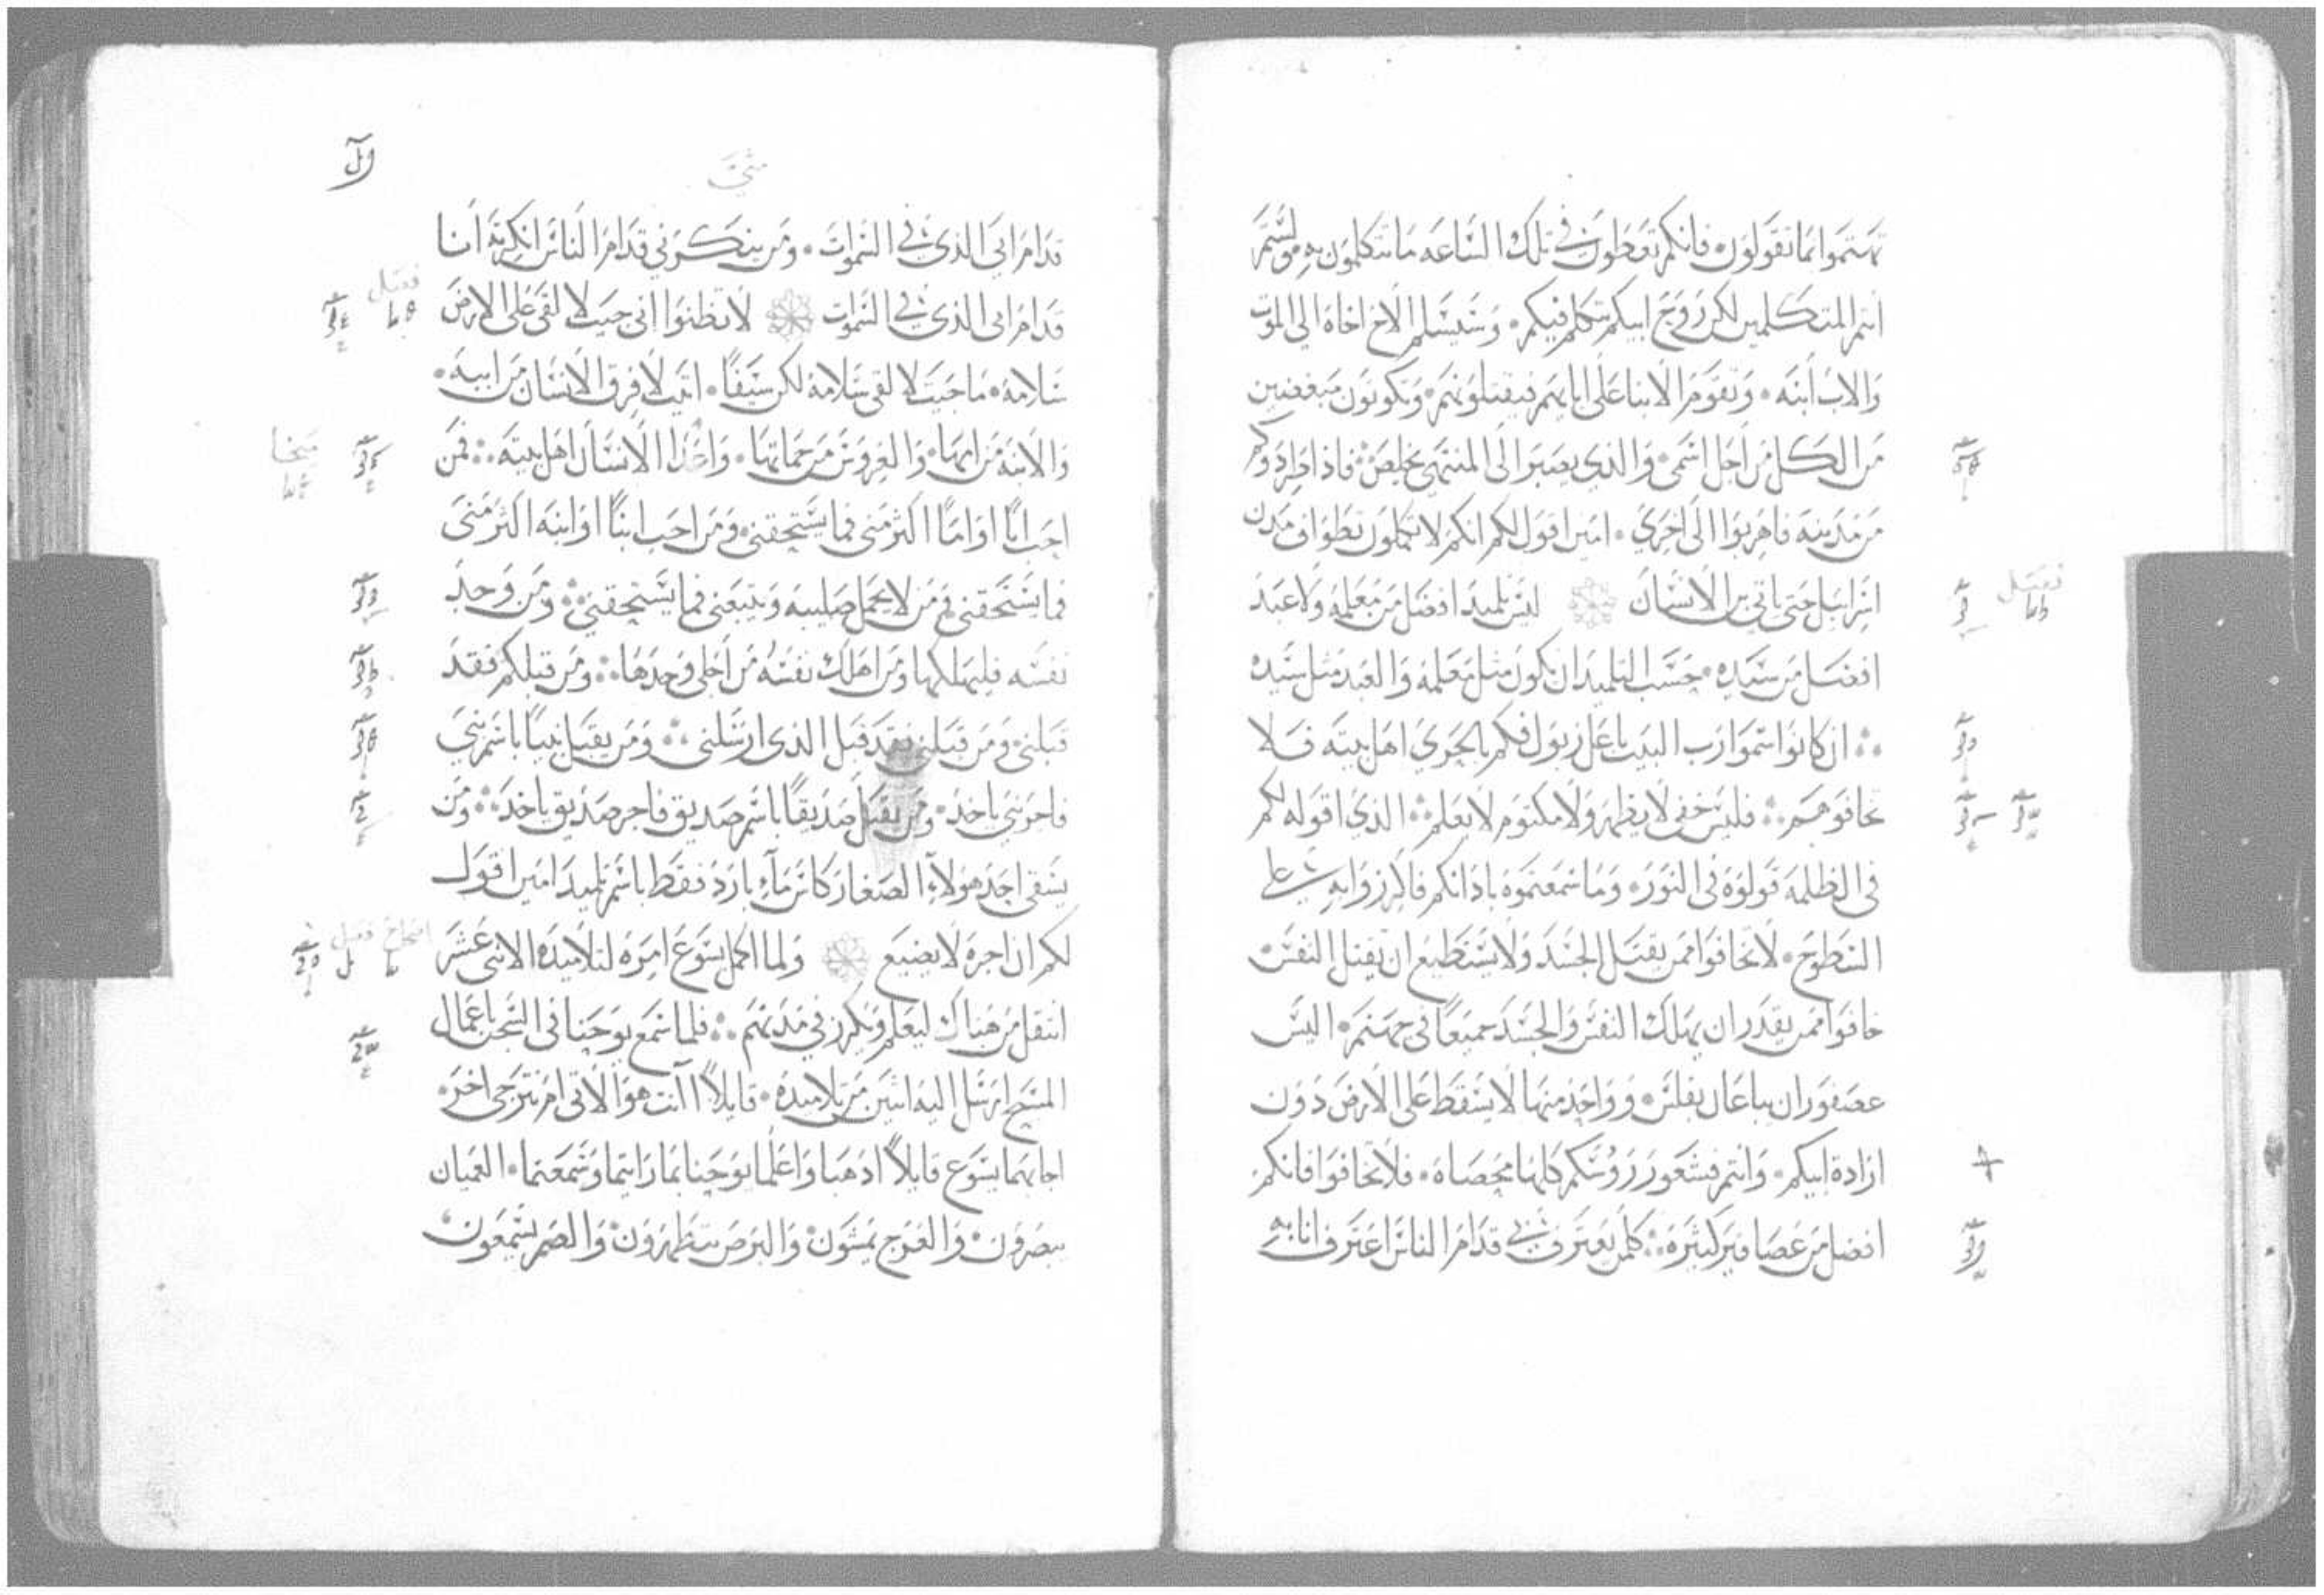 تهتموا بما تقولون فانكم تعطون في تلك الساعه ما تتكلمون به ولستم
انتم المتكلمين لكن روح ابيكم يتكلم فيكم وسيسلم الاخ اخاه الى الموت
والاب ابنه وتقوم الابنا على ابايهم فيقتلونهم وتكونون مبغضين
من الكل من اجل اسمي والذي يصبر الى المنتهى يخلص فاذا طردوكم
من مدينه فاهربوا الى اخرى امين اقول لكم انكم لا تكملون تطواف مدن
اسراييل حتى ياتي بن الانسان ليس تلميد افضل من معلمه ولا عبد
فصل
افضل من سيده حسب التلميد ان يكون مثل معلمه والعبد مثل سيده
ان كانوا سموا رب البيت باعل زبول فكم بالحري اهل بيته فلا
تخافوهم فليس خفي لا يظهر ولا مكتوم لا يعلم الذي اقوله لكم
في الظلمه قولوه في النور وما سمعتموه باذانكم فاكرزوا به على
السطوح لا تخافوا ممن يقتل الجسد ولا يستطيع ان يقتل النفس
خافوا ممن يقدر ان يهلك النفس والجسد جميعا في جهنم اليس
عصفوران يباعان بفلس وواحد منها لا يسقط على الارض دون
ارادة ابيكم وانتم فشعور رؤسكم كلها محصاه فلا تخافوا فانكم
افضل من عصافير كثيره كلمن يعترف بي قدام الناس اعترف انا به
متى
قدام ابي الذي في السموات ومن ينكرني قدام الناس انكرته انا
قدام ابي الذي في السموات لا تظنوا اني جيت لالقي على الارض
فصل
سلامه ما جيت لالقي سلامه لكن سيفا اتيت لافرق الانسان من ابيه
والابنه من امها والعروس من حماتها واعدا الانسان اهل بيته فمن
احب ابا او اما اكثر مني فما يستحقني ومن احب ابنا او ابنه اكثر مني
فما يستحقني ومن لا يحمل صليبه ويتبعني فما يستحقني ومن وجد
نفسه فليهلكها ومن اهلك نفسه من اجلي وجدها ومن قبلكم فقد
قبلني ومن قبلني فقد قبل الذي ارسلني ومن يقبل نبيا باسم نبي
فاجر نبي ياخد ومن يقبل صديقا باسم صديق فاجر صديق ياخد ومن
يسقي احد هولاء الصغار كاس ماء بارد فقط باسم تلميد امين اقول
لكم ان اجره لا يضيع ولما اكمل يسوع امره لتلاميده الاثنى عشر
اصحاح فصل
انتقل من هناك ليعلم ويكرز في مدنهم فلما سمع يوحنا في السجن باعمال
المسيح ارسل اليه اثنين من تلاميده قايلا اانت هو الاتي ام نترجى اخر
اجابهما يسوع قايلا ادهبا واعلما يوحنا بما رايتما وسمعتما العميان
يبصرون والعرج يمشون والبرص يتطهرون والصم يسمعون